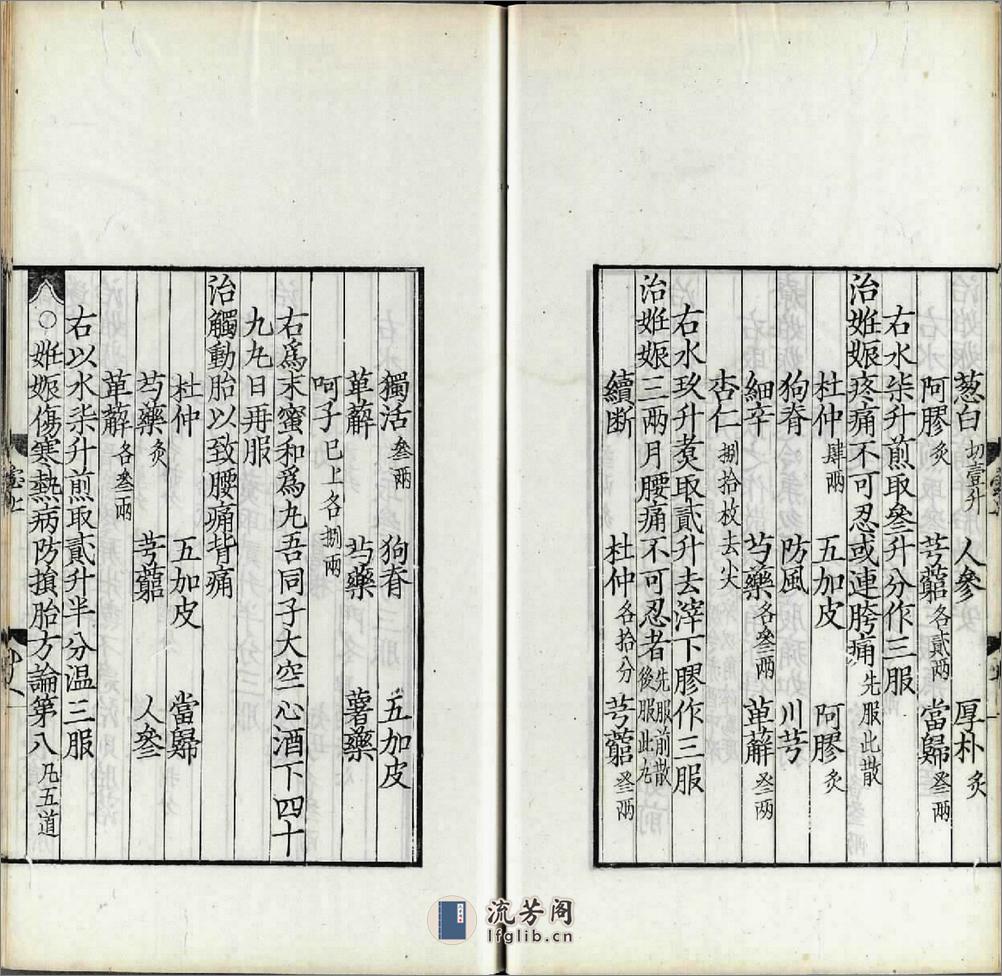 葱白切壹升 人參 厚朴炙
阿膠炙 芎藭各貳兩 當歸叄兩
右水柒升煎取叄升分作三服
治姙娠疼痛不可忍或連胯痛先服此散
杜仲肆兩 五加皮 阿膠炙
狗脊 防風 川芎
細辛 芍藥各叄兩 萆薢叄兩
杏仁捌拾枚去小尖
右水玖升煑取貳升去滓下膠作三服
治姙娠三兩月腰痛不可忍者先服前散後服此丸
續斷 杜仲各拾分 芎藭叄兩
獨活叄兩 狗脊 五加皮
萆薢 芍藥 薯藥
呵子巳上各捌兩
右爲末蜜和爲丸吾同子大空心酒下四十
九丸日再服
治觸動胎以致腰痛背痛
杜仲 五加皮 當歸
芍藥炙 芎藭 人參
萆薢各叄兩
右以水柒升煎取貳升半分温三服
○姙娠傷寒熱病防損胎方論第八凡五道
流芳阁
lfglib.cn